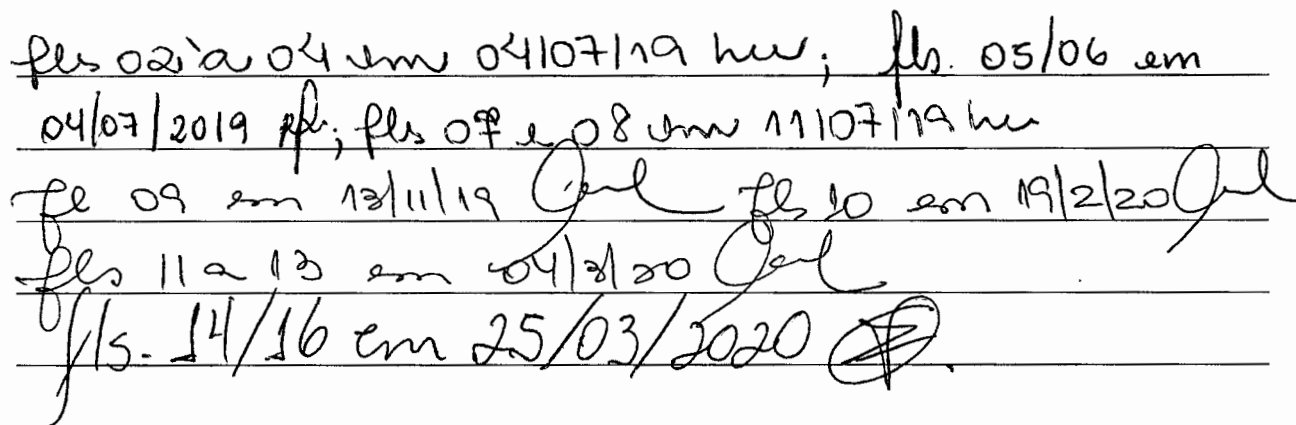 fls 02 à 04 em 04/07/19 hw; fls. 05/06 em
04/07/2019; fls 07 e 08 em 11/07/19 hw
fl 09 em 13/11/19 fls 10 em 19/2/20
fls 11 a 13 em 04/3/20
fls. 14/16 em 25/03/2020